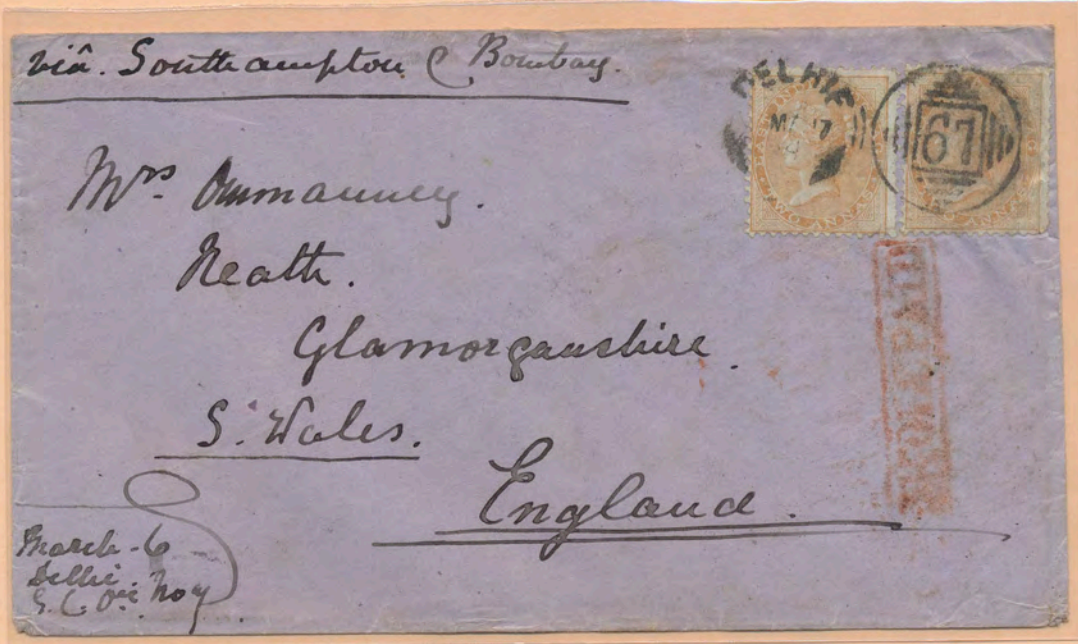 viâ. Southampton & Bombay.
DELHIE
MA 7
67
TWO ANNAS
Mrs. Ommanney.
Neath.
Glamorganshire
S. Wales.
England.
INDIA PAID
March - 6
Delhi.